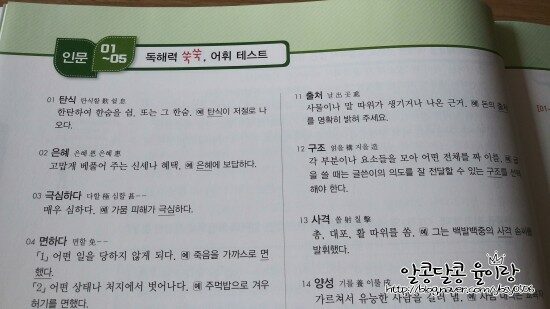 인문 01
~05
독해력 쑥쑥, 어휘 테스트
01 탄식 탄식할 歎 쉴 息
한탄하여 한숨을 쉼. 또는 그 한숨. 예 탄식이 저절로 나
오다.
02 은혜 은혜 恩 은혜 惠
고맙게 베풀어 주는 신세나 혜택. 예 은혜에 보답하다.
03 극심하다 다할 極 심할 甚--
매우 심하다. 예 가뭄 피해가 극심하다.
04 면하다 면할 免--
「1」 어떤 일을 당하지 않게 되다. 예 죽음을 가까스로 면
했다.
「2」 어떤 상태나 처지에서 벗어나다. 예 주먹밥으로 겨우
허기를 면했다.
11 출처 날 出 곳 處
사물이나 말 따위가 생기거나 나온 근거. 예 돈의 출처
를 명확히 밝혀 주세요.
12 구조 얽을 構 지을 造
각 부분이나 요소들을 모아 어떤 전체를 짜 이룸. 예 글
을 쓸 때는 글쓴이의 의도를 잘 전달할 수 있는 구조를 선택
해야 한다.
13 사격 쏠 射 칠 擊
총, 대포, 활 따위를 쏨. 예 그는 백발백중의 사격 솜씨를
발휘했다.
14 양성 기를 養 이룰 成
가르쳐서 유능한 사람을 길러 냄. 예
[01~
알콩달콩 율이랑